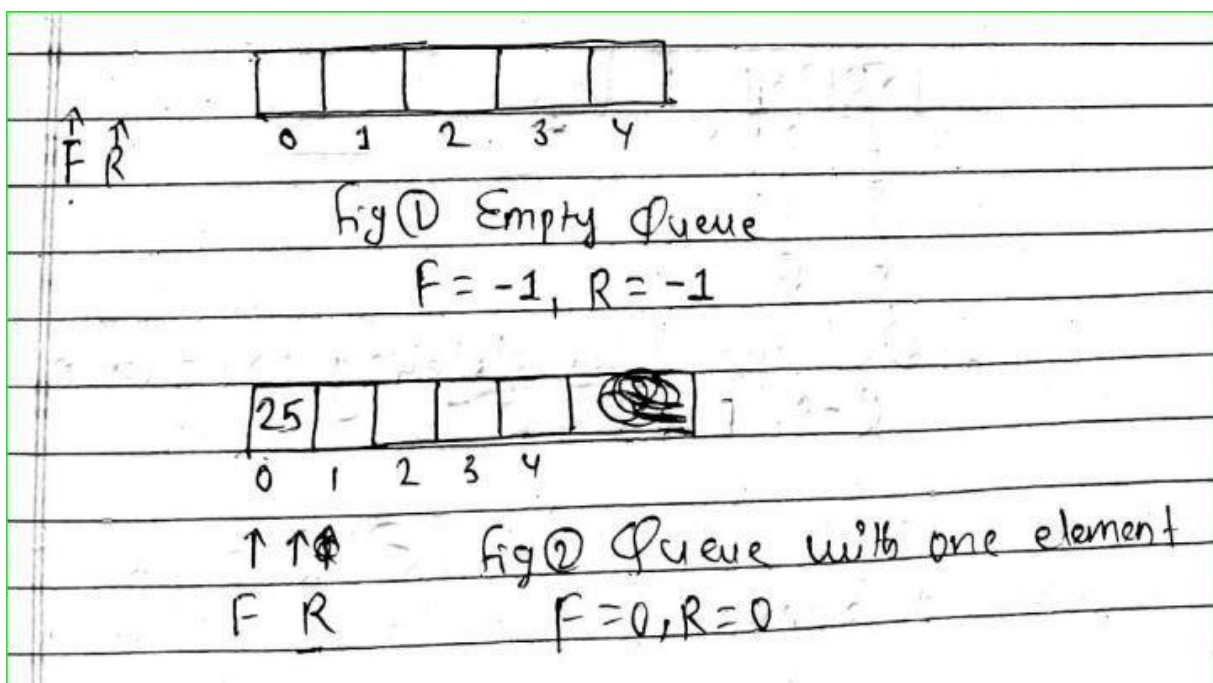 0 1 2 3 4
F R
Fig ① Empty Queue
F = -1, R = -1
25
0 1 2 3 4
F R
Fig ② Queue with one element
F = 0, R = 0